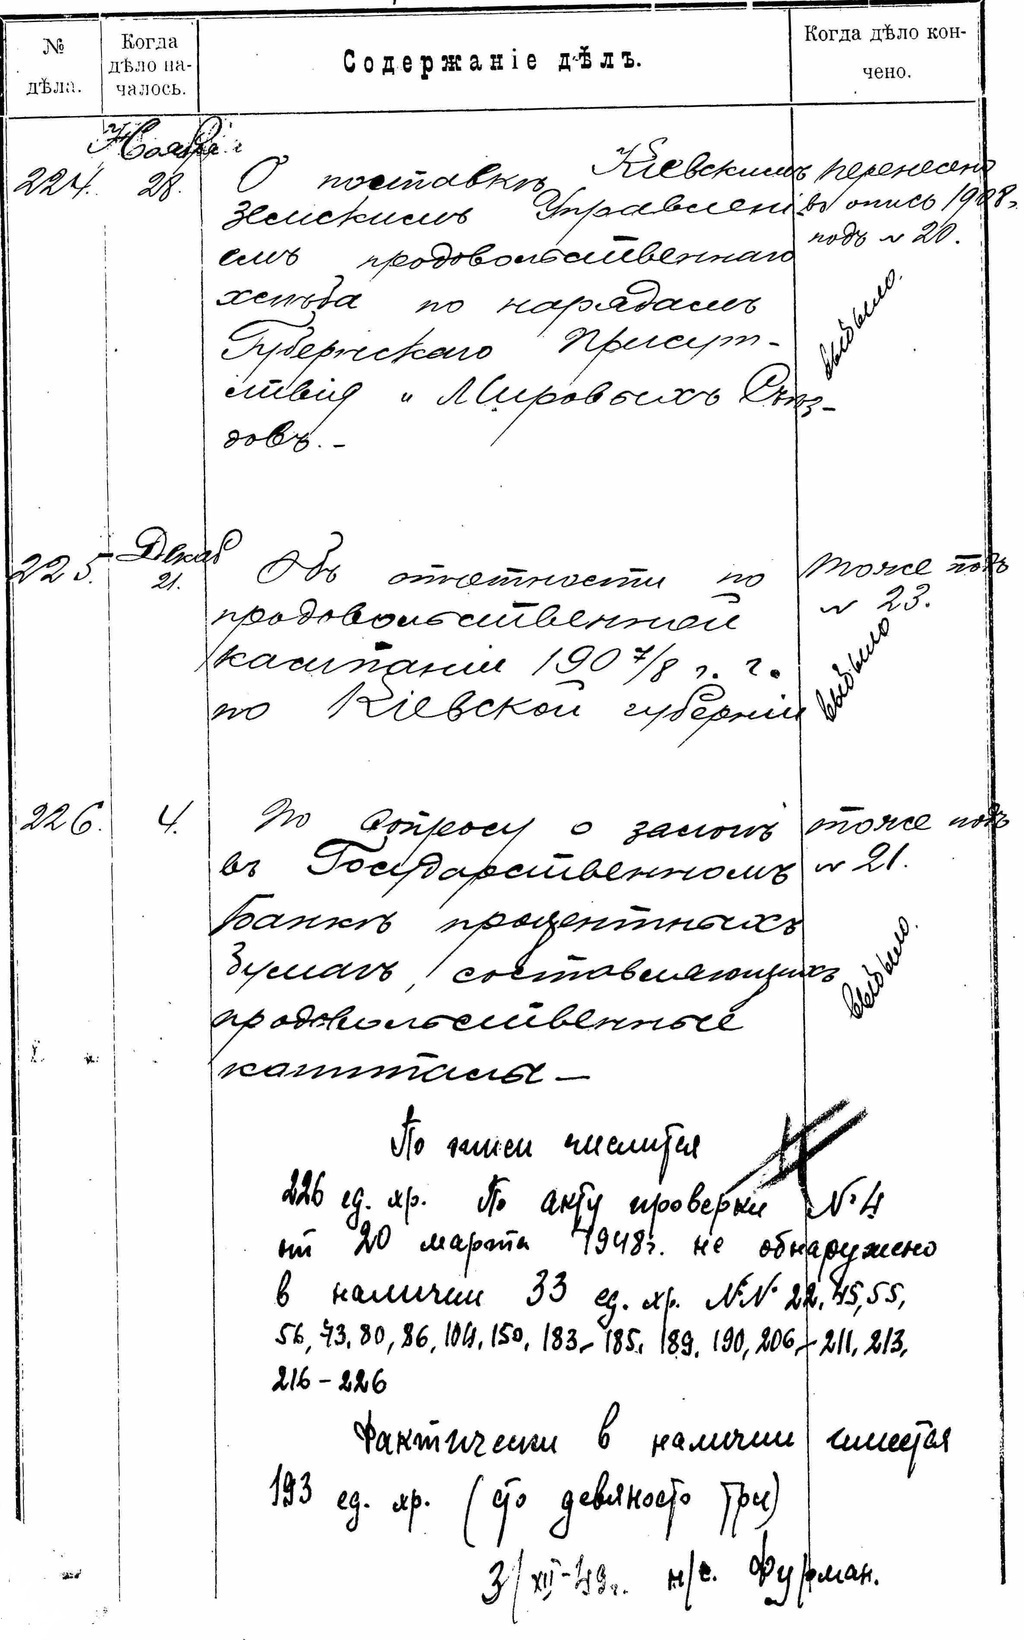 № дѣла.
Когда дѣло на-
чалось.
Содержаніе дѣлъ.
Когда дѣло кон-
чено.
Ноября
224. 28. О поставкѣ Кіевскимъ
Земскимъ Управлені
емъ продовольственнаго
хлѣба по нарядамъ
Губернскаго Присут-
ствія и Мировыхъ Съѣз-
довъ. -
перенесено
въ опись 1908 г.
подъ № 20.
выбыло.
Декаб
225. 21. Объ отчетности по
продовольственной
кампаніи 1907/8 г. г.
по Кіевской губерніи
тоже подъ
№ 23.
выбыло
226. 4. По вопросу о залогѣ
въ Государственномъ
Банкѣ процентныхъ
бумагъ, составляющихъ
продовольственные
капиталы —
тоже подъ
№ 21.
выбыло.
По описи числится
226 ед. хр. По акту проверки № 4
от 20 марта 1948 г. не обнаружено
в наличии 33 ед. хр. №№ 22, 45, 55,
56, 73, 80, 86, 104, 150, 183-185, 189, 190, 206-211, 213,
216-226
Фактически в наличии имеется
193 ед. хр. (сто девяносто три)
3/XII-49 г. н/с. Фурман.